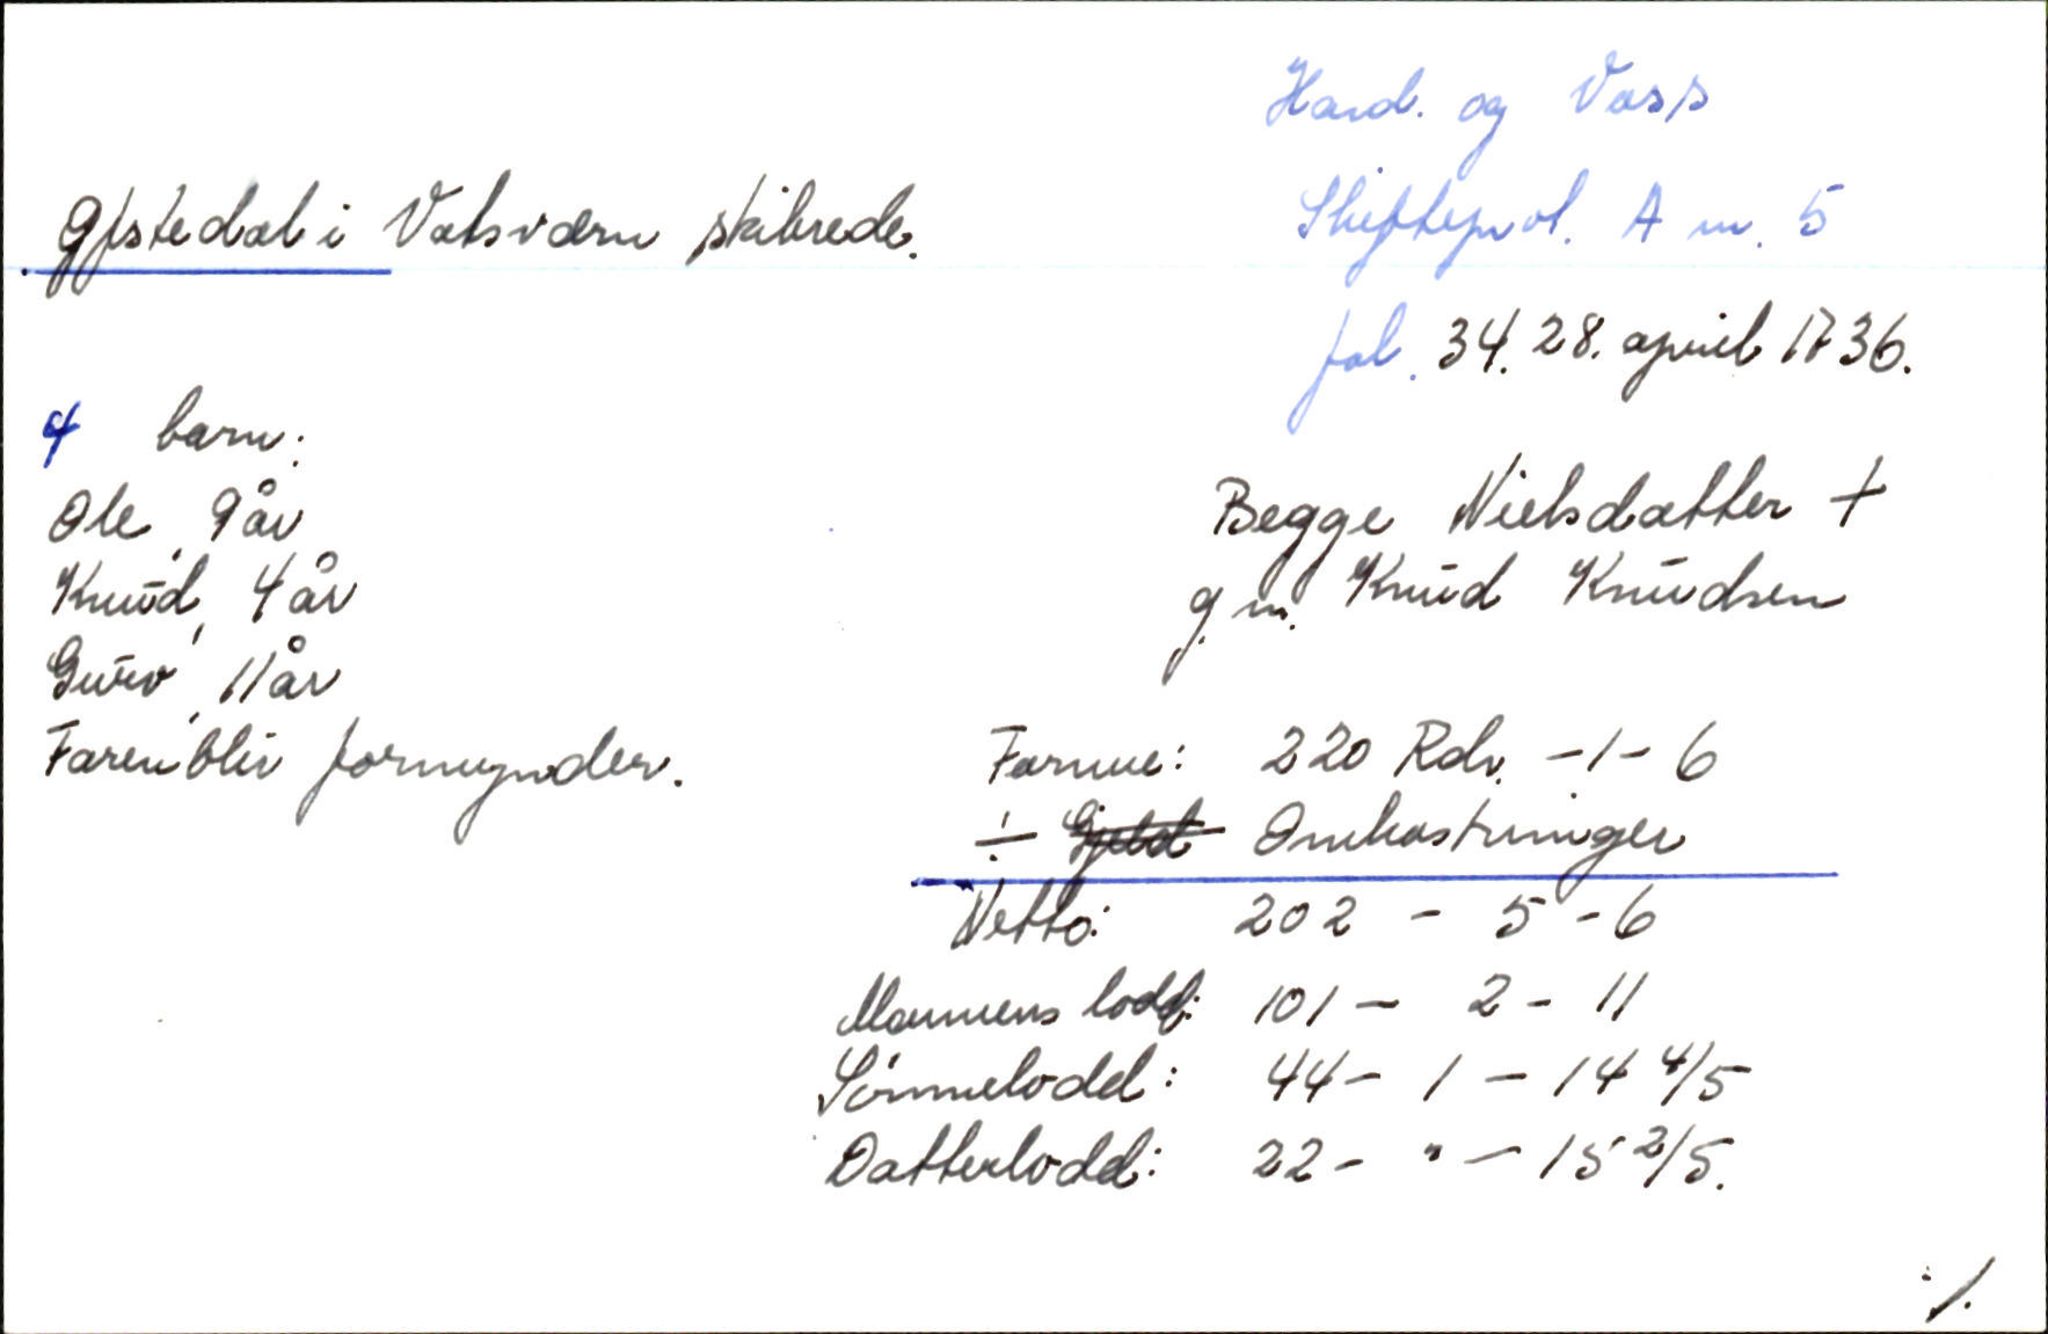 Hard. og Voss
Skifteprot. A nr. 5
fol. 34. 28. april 1736.
Gjstedal i Vatsværn skibrede.
4 barn:
Ole, 9 år
Knud, 4 år
Guro, 11 år
Faren blir formynder.
Begge Nielsdatter +
g.m. Knud Knudsen
Formue: 220 Rdr. - 1 - 6
÷ Gjeld Omkostninger
Netto: 202 - 5 - 6
Mannens lodd: 101 - 2 - 11
Sönnelodd: 44 - 1 - 14 4/5
Datterlodd: 22 - " - 15 2/5.
./.